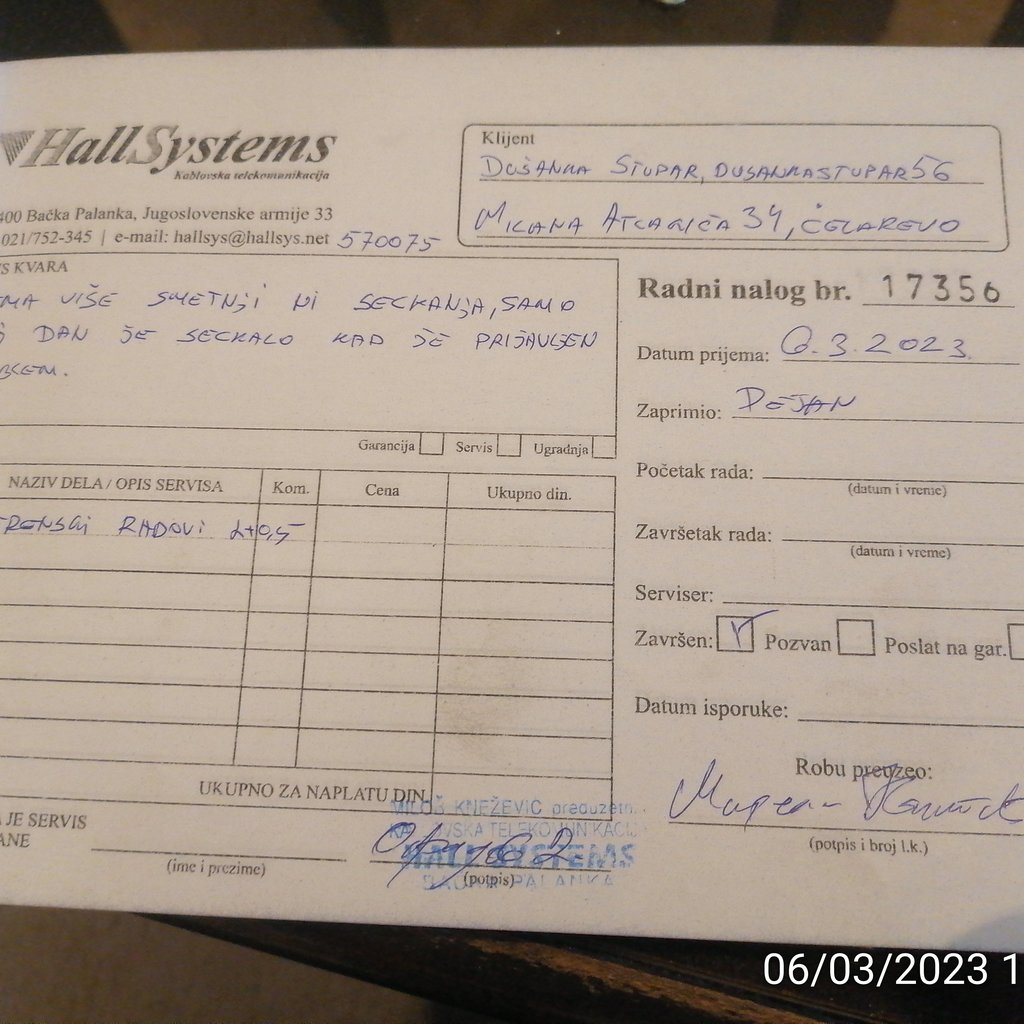 HallSystems
Kablovska telekomunikacija
400 Bačka Palanka, Jugoslovenske armije 33
021/752-345 | e-mail: hallsys@hallsys.net 570075
Klijent
DUŠANKA STUPAR, DUSANKASTUPAR56
MILANA ATLAGIĆA 34, ČELAREVO
S KVARA
EMA VIŠE SMETNJI NI SECKANJA, SAMO
DAN JE SECKALO KAD JE PRIJAVLJEN
BLEM.
Garancija Servis Ugradnja
Radni nalog br. 17356
Datum prijema: 6.3.2023.
Zaprimio: DEJAN
Početak rada:
(datum i vreme)
Završetak rada:
(datum i vreme)
Serviser:
Završen: Pozvan Poslat na gar.
Datum isporuke:
Robu preuzeo:
(potpis i broj l.k.)
NAZIV DELA / OPIS SERVISA Kom. Cena Ukupno din.
TRENSKI RADOVI 1+0,5
UKUPNO ZA NAPLATU DIN.
A JE SERVIS
ANE
(ime i prezime)
(potpis)
MILOŠ KNEŽEVIĆ preduzetn.
KABLOVSKA TELEKOMUNIKACIJ
HALL SYSTEMS
BAČKA PALANKA
06/03/2023 1